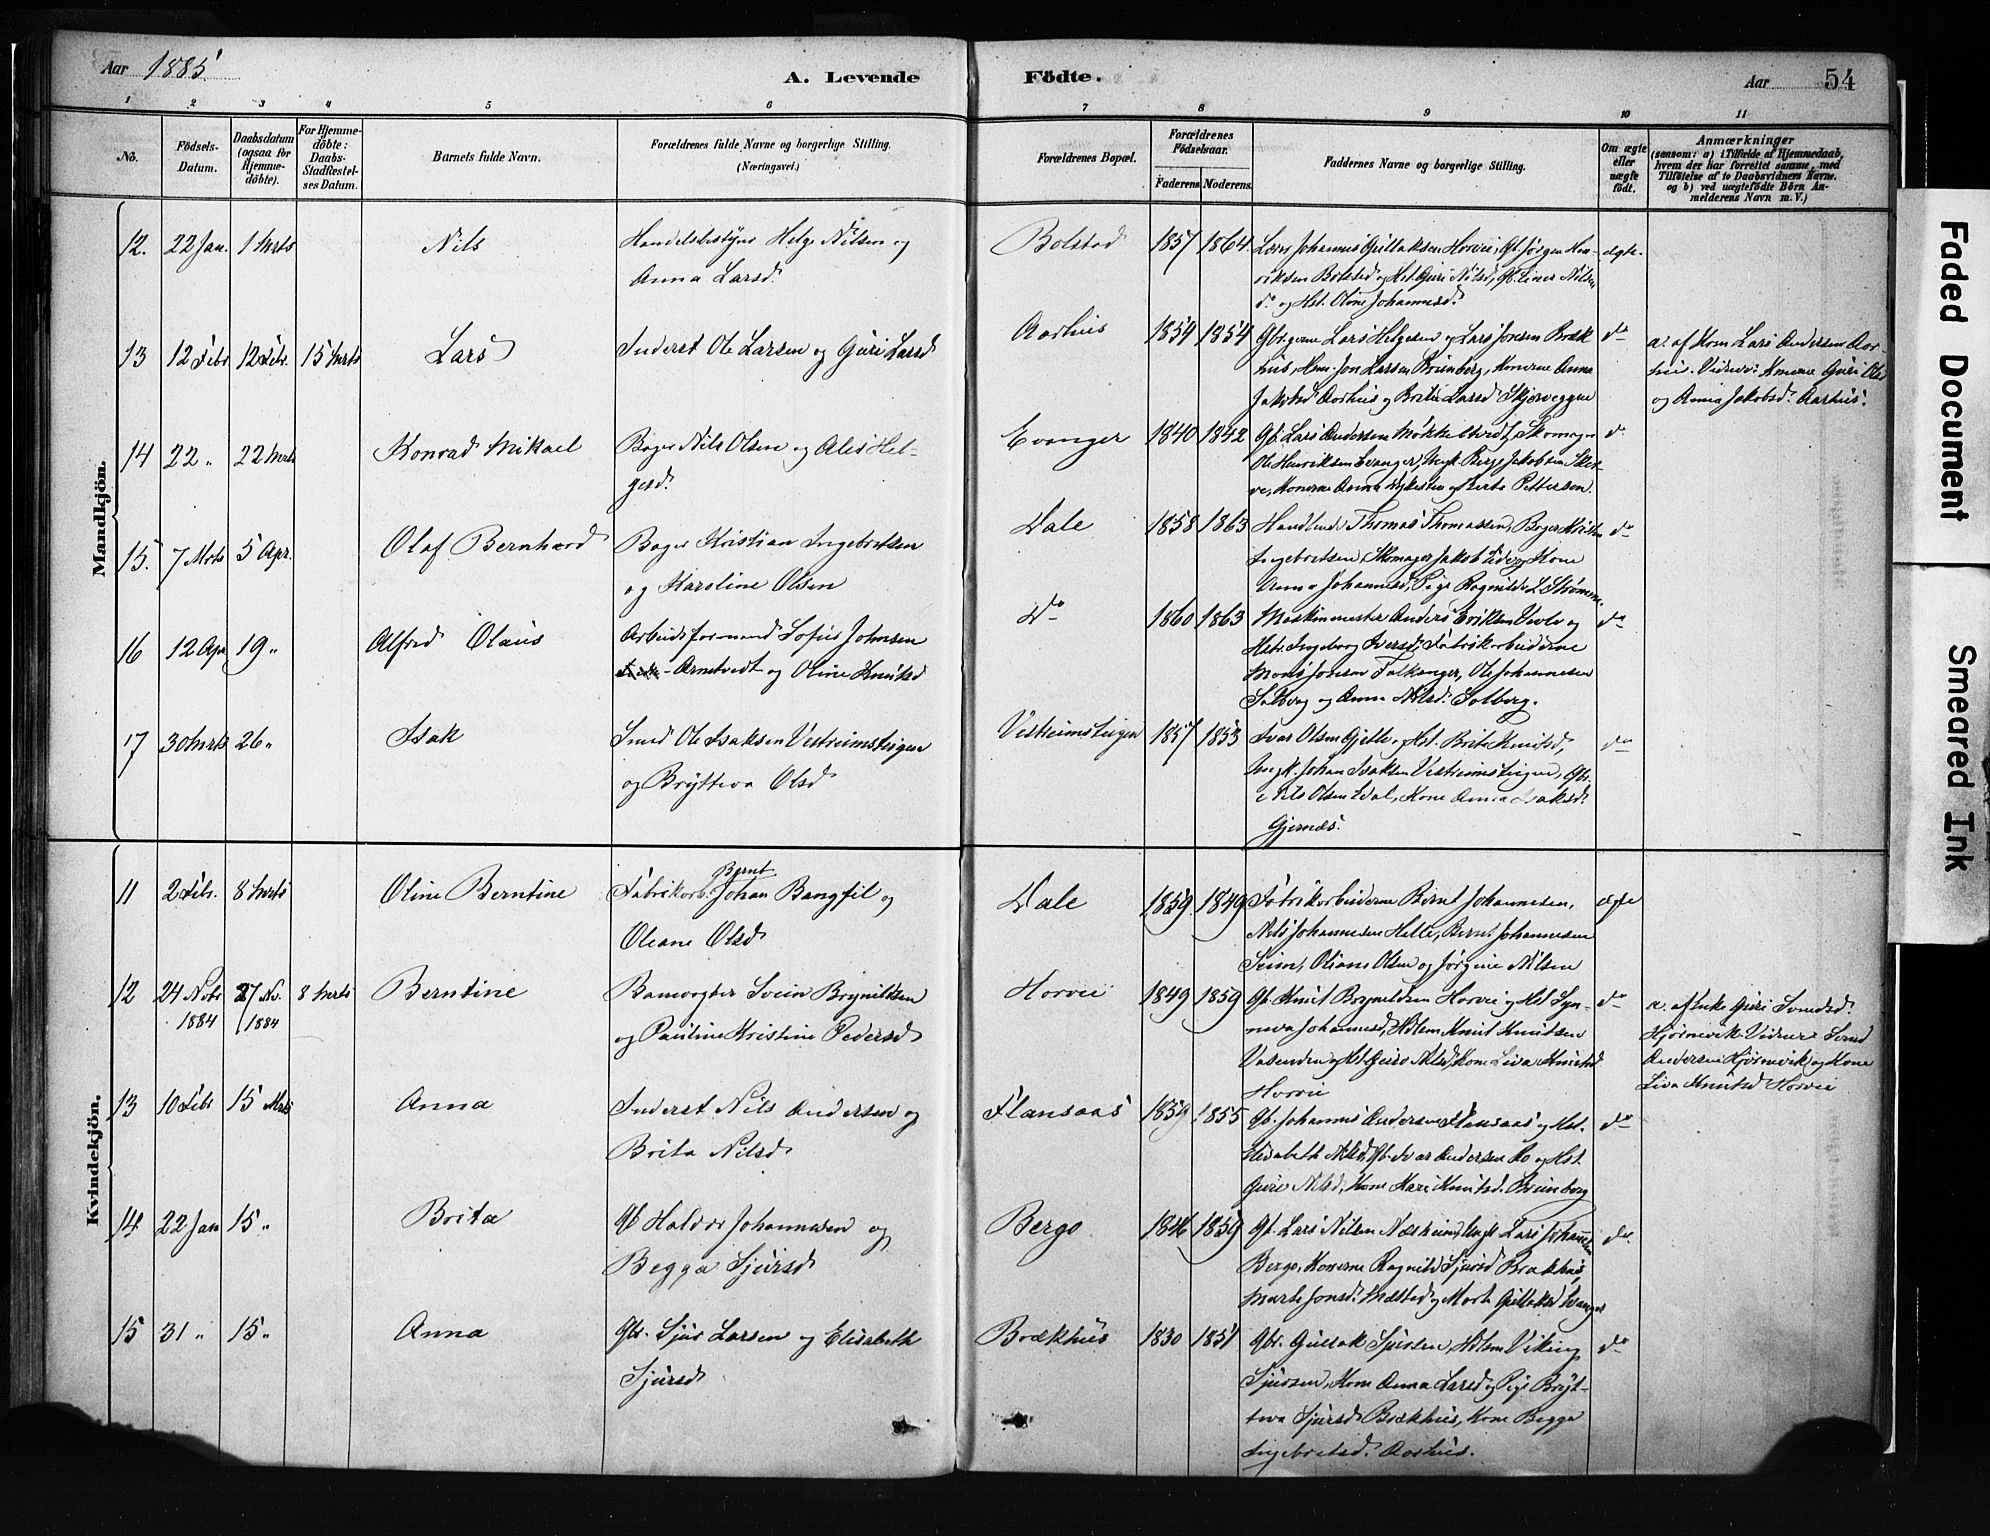 Aar 1885
A. Levende Födte.
Aar 54
1 2 3 4 5 6 7 8 9 10 11
No.
Födsels-Datum.
Daabsdatum (ogsaa for Hjemme-döbte).
For Hjemme-döbte: Daabs-Stadfestel-ses Datum.
Barnets fulde Navn.
Forældrenes fulde Navne og borgerlige Stilling. (Næringsvei.)
Forældrenes Bopæl.
Forældrenes Födselsaar.
Faderens Moderens
Faddernes Navne og borgerlige Stilling.
Om ægte eller uægte födt.
Anmærkninger
(saasom: a) i Tilfælde af Hjemmedaab,
hvem der har forrettet samme, med
Tilföielse af to Daabsvidners Navne,
og b) ved uægtefödte Börn An-
melderens Navn m. V.)
Mandkjön.
12. 22 Jan. 1 Mrts Nils
Handelsbestyrer Helge Nilsen og
Anna Larsd.
Bolstad 1857 1864
Johannes Gullaksen Horvei, Gb. Jørgen Hen-
riksen Bolstad og Hst. Guri Nilsd, Gb. Einar Nilsen
do og Hst. Oline Johannesd.
ægte.
13 12 Febr 12 Febr. 15 Mrts Lars
Inderst Ole Larsen og Guri Larsd
Aarhus 1859 1854
Gbrgerne Lars Helgesen og Lars Jonsen Bræk
hus, Hm. Jon Larsen Brunberg, Konerne Anna
Jakobsd Aarhus og Brita Larsd Skjerveggen
do
a. af Kone Lars Andersen Aar-
hus. Vidner: Konerne Guri Olsd
og Anna Jakobsd. Aarhus.
14 22 " 22 Mrts Konrad Mikael
Bager Nils Olsen og Alis Hel-
gesd.
Evanger 1840 1842
Gb. Lars Andersen Mökkeltvedt, Skomager
Ole Henriksen Evanger, Ungk. Berge Jakobsen Sker-
ve, Konerne Anna og Berte Pettersen.
do
15. 7 Mrts 5 Apr. Olaf Bernhard
Bager Kristian Ingebretsen
og Karoline Olsen
Dale 1858 1863
Handlende Thomas Thomassen, Bager Kristen
Ingebretsen, Skomager Jakob og Kone
Anna Johannesd, Pige Ragnilde L. Strømme.
do
16 12 Apr 19 " Alfred Olaus
Arbeidsformand Sofus Johnsen
Arnetvedt og Oline Knutsd
Do 1860 1863
Maskinmester Anders Eriksen og
Hst. Ingeborg Iversd, Fabrikarbeiderne
Mons Jonsen Falkanger, Ole Johannesen
Solberg og Anna Nilsd. Solberg.
do
17 30 Mrts 26 " Isak
Smed Ole Isaksen Vestreimsteigen
og Brytteva Olsd
Vestreimsteigen 1857 1853
Ivar Olsen Gjelle, Hst. Brita Knutsd,
Ungk. Johan Isaksen Vestreimsteigen, Gbr.
Nils Olsen Kval, Kone Anna Isaksd.
Gjernes.
do
Kvindekjön.
11 2 Febr. 8 Mrts Oline Berntine
Bernt
Fabrikarb. Johan Bangfil og
Oleane Olsd
Dale 1859 1849
Fabrikarbeiderne Bernt Johannesen,
Nils Johannesen Helle, Bernt Johannesen
Seim, Oliane Olsen og Jørgine Nilsen
ægte
12 24 Nobr 1884 27 No. 1884 8 Mrts Berntine
Banevogter Svein Brynildsen
og Pauline Kristine Pedersd
Horvei 1849 1859
Gb. Knut Brynildsen Horvei og Hst Syn-
neva Johannesd, Hdlem Knut Knutsen
Vasenden og Hst Guro Nilsd, Kone Liva Knutsd
Horvei
do
a. af Enke Guri Svendsd.
Hjørnevik. Vidner Svend
Andersen Hjørnevik og Kone
Liva Knutsd Horvei
13 10 Febr 15 Mrts Anna
Inderst Nils Andersen og
Brita Nilsd
Flansaas 1859 1855
Gb. Johannes Andersen Flansaas og Hst.
Elisabeth Nilsd, Gb. Ivar Andersen Ro og Hst.
Guri Nilsd, Kone Kari Knutsd. Brunberg
do
14 22 Jan 15 " Brita
Gb Haldor Johannesen og
Begga Sjursd
Berge 1846 1859
Gb. Lars Nilsen Næsheim, Ungk Lars Johannesen
Berge, Konerne Ragnilde Sjursd Brækhus,
Marte Jonsd. Mæstad og Marta Gullaksd Evanger
do.
15 31 " 15 " Anna
Gbr. Sjur Larsen og Elisabeth
Sjursd
Brækhus 1830 1851
Gbr. Gullak Sjursen, Hdlem Viking
Sjursen, Kone Anna Larsd og Pige Bryt-
teva Sjursd Brækhus, Kone Begga
Ingebretsd. Aarhus.
do
Faded Document
Smeared Ink